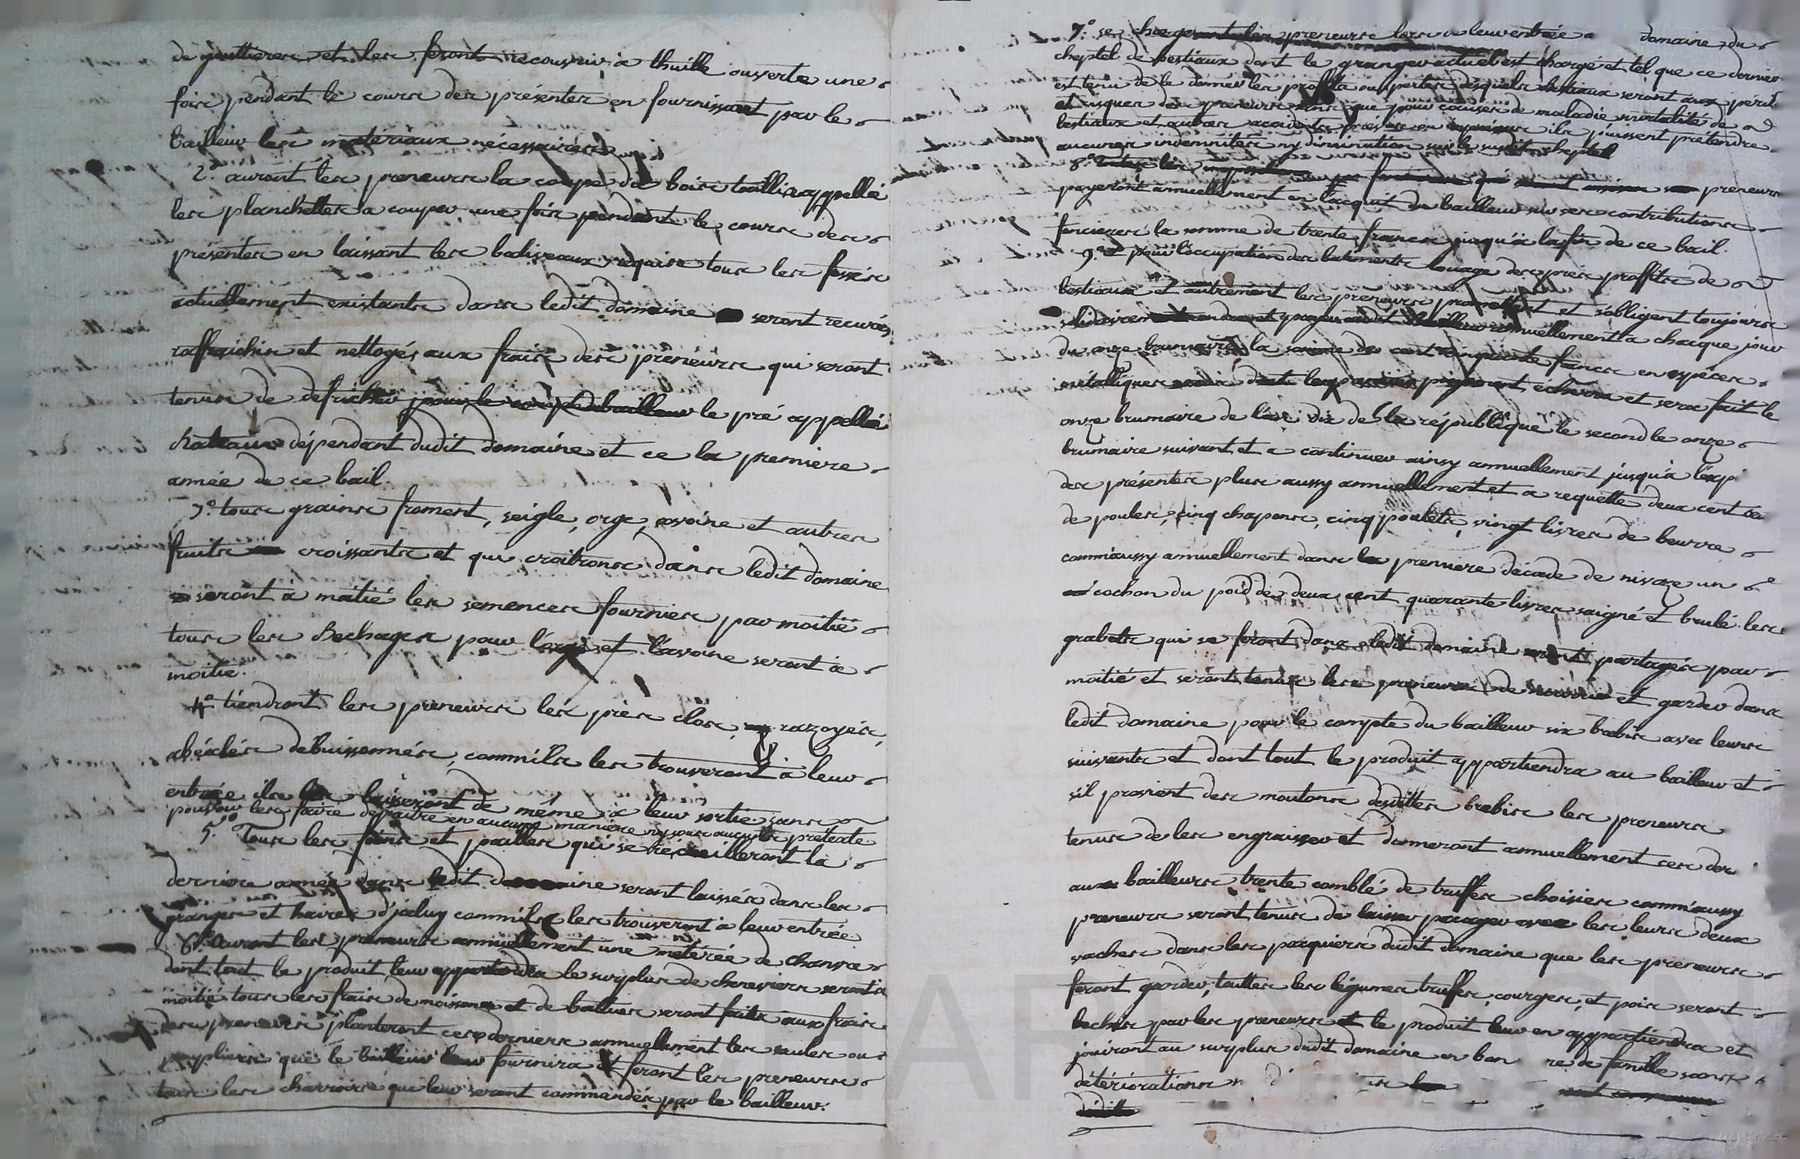 de gouttieres et les feront recouvrir a thuille ouverte une
fois pendant le cours des présentes en fournissant par le
Bailleur les materiaux nécessaires
2.° auront les preneurs la coupe de bois taillis appellé
les planchettes a couper une fois pendant le cours des
présentes en laissant les baliveaux requis tous les fossés
actuellement existants dans ledit domaine seront récurés
raffraichis et nettoyés aux frais des preneurs qui seront
tenus de défricher pour le compte du bailleur le pré appellé
chateaux dépendant dudit domaine et ce la premiere
année de ce bail.
3.° tous grains froment, seigle, orge, avoine et autres
fruits croissants et qui croitrons dans ledit domaine
seront à moitié les semences fournies par moitié
tous les Bechages pour l'orge et l'avoine seront a
moitié.
4.° tiendront les preneurs les prés clos, razoyés,
abéalés débuissonnés, comm'ils les trouveront à leur
entrée ils les laisseront de même à leur sortie sans
pouvoir les faire dépaitre en aucune maniere ny sous aucuns prétexte
5.° Tous les foins et pailles qui se récueilleront la
derniere année dans ledit domaine seront laissés dans les
granges et havres d'jceluy comm'ils les trouveront à leur entrée
6.° auront les preneurs annuellement une métérée de chanvre
dont tout le produit leur appartiendra le surplus de cheneviere seront a
moitié tous les frais de moissons et de battues seront faits aux frais
des preneurs planteront ces derniers annuellement les saules ou
peupliers que le bailleur leur fournira et feront les preneurs
tous les charrois que leur seront commandés par le bailleur.
7.° se chargeront les preneurs lors de leur entrée a domaine du
cheptel de bestiaux dont le granger actuel est chargé et tel que ce dernier
est tenu de le donner les profits ou pertes desquels bestiaux seront aux péril
et risques des preneurs sans que pour causes de maladie mortalité de
bestiaux et autres accidents prévus ou imprévus ils puissent prétendre
aucunes indemnités ny diminution sur le susdit cheptel
8.° preneurs
payeront annuellement en l'acquit du bailleur sur ses contributions
foncieres la somme de trente francs jusqu'à la fin de ce bail.
9.° et pour l'occupation des batiments louage des prés proffits de
bestiaux et autrement les preneurs promettent et s'obligent toujours
solidairement annuellement a chaque jour
du onze brumaire la somme de cent cinquante francs en espéces
métalliques dont le premier payement échoira et sera fait le
onze brumaire de l'an dix de la république le second le onze
brumaire suivant et a continuer ainsy annuellement jusqu'a l'exp
des présentes plus aussy annuellement et a requette deux cent
de poules, cinq chapons, cinq poulets, vingt livres de beurre
comm'aussy annuellement dans la premiere décade de nivoze un
cochon du poid de deux cent quarante livres saigné et brulé les
grabots qui se feront dans ledit domaine seront partagés par
moitié et seront tenus les preneurs de nourrir et garder dans
ledit domaine pour le compte du bailleur six brebis avec leurs
suivants et dont tout le produit appartiendra au bailleur et
s'il provient des moutons desdittes brebis les preneurs
tenus de les engraisser et donneront annuellement ces der
au bailleurs trente comblé de truffes choisies comm'aussy
preneurs seront tenus de laisser pacager avec les leurs deux
vaches dans les paquiers dudit domaine que les preneurs
feront garder, touttes les légumes truffes, courges, et pois seront
bechés par les preneurs et le produit leur en appartiendra et
jouiront au surplus dudit domaine en bon re de famille sans
détériorations